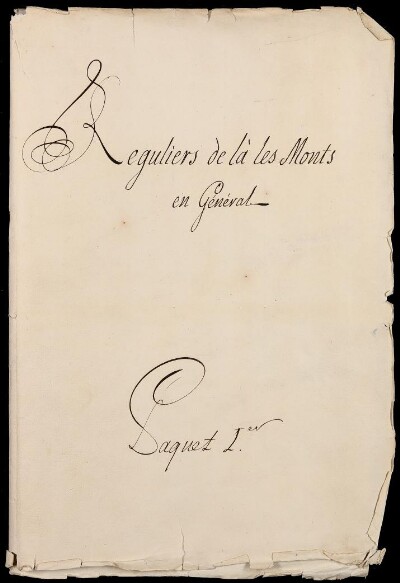 Reguliers de là les Monts
en Général
Paquet 1.er